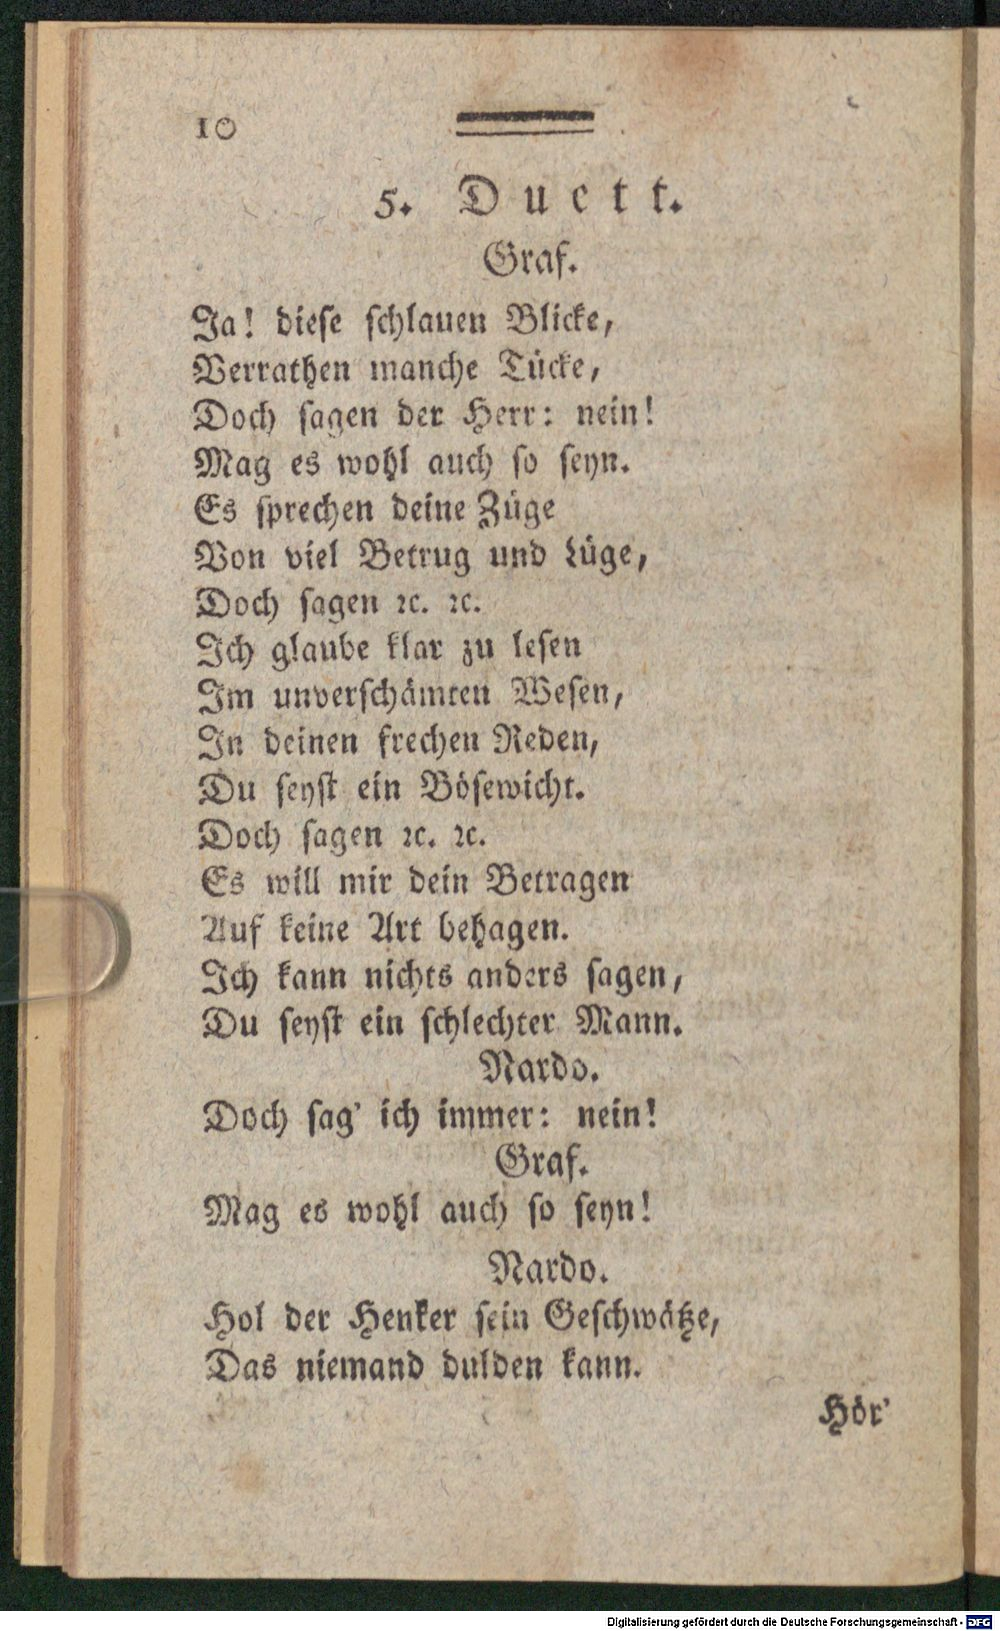 10
5. Duett.
Graf.
Ja! diese schlauen Blicke,
Verrathen manche Tücke,
Doch sagen der Herr: nein!
Mag es wohl auch so seyn.
Es sprechen deine Züge
Von viel Betrug und Lüge,
Doch sagen ꝛc. ꝛc.
Ich glaube klar zu lesen
Im unverschämten Wesen,
In deinen frechen Reden,
Du seyst ein Bösewicht.
Doch sagen ꝛc. ꝛc.
Es will mir dein Betragen
Auf keine Art behagen.
Ich kann nichts anders sagen,
Du seyst ein schlechter Mann.
Nardo.
Doch sag' ich immer: nein!
Graf.
Mag es wohl auch so seyn!
Nardo.
Hol der Henker sein Geschwätze,
Das niemand dulden kann.
Hör'
Digitalisierung gefördert durch die Deutsche Forschungsgemeinschaft - DFG